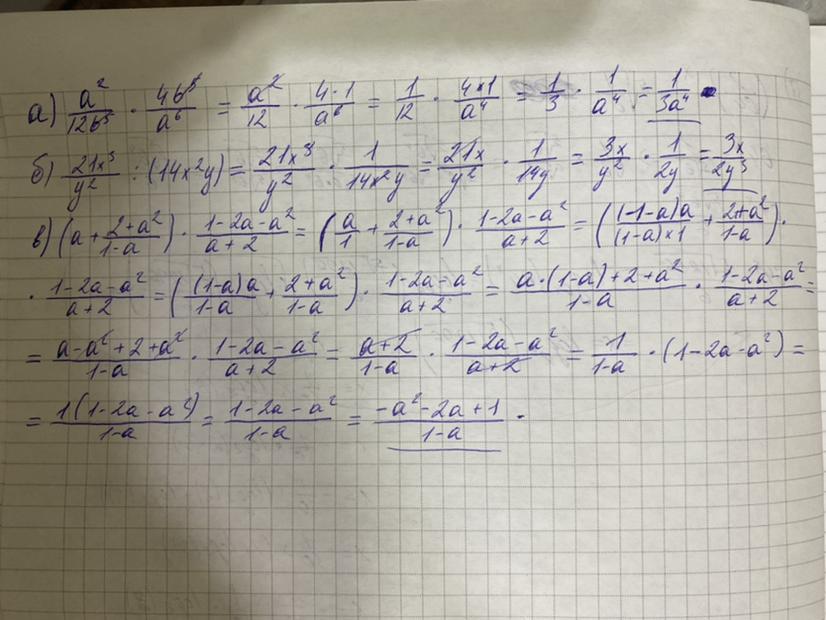 а) a²/12b⁵ · 4b⁵/a⁶ = a²/12 · 4·1/a⁶ = 1/12 · 4·1/a⁴ = 1/3 · 1/a⁴ = 1/3a⁴
б) 21x³/y² : (14x²y) = 21x³/y² · 1/14x²y = 21x/y² · 1/14y = 3x/y² · 1/2y = 3x/2y³
в) (a + 2+a²/1-a) · 1-2a-a²/a+2 = (a/1 + 2+a²/1-a) · 1-2a-a²/a+2 = ((-1-a)a/(1-a)×1 + 2+a²/1-a) ·
· 1-2a-a²/a+2 = ((1-a)a/1-a + 2+a²/1-a) · 1-2a-a²/a+2 = a·(1-a)+2+a²/1-a · 1-2a-a²/a+2 =
= a-a²+2+a²/1-a · 1-2a-a²/a+2 = a+2/1-a · 1-2a-a²/a+2 = 1/1-a · (1-2a-a²) =
= 1(1-2a-a²)/1-a = 1-2a-a²/1-a = -a²-2a+1/1-a ·